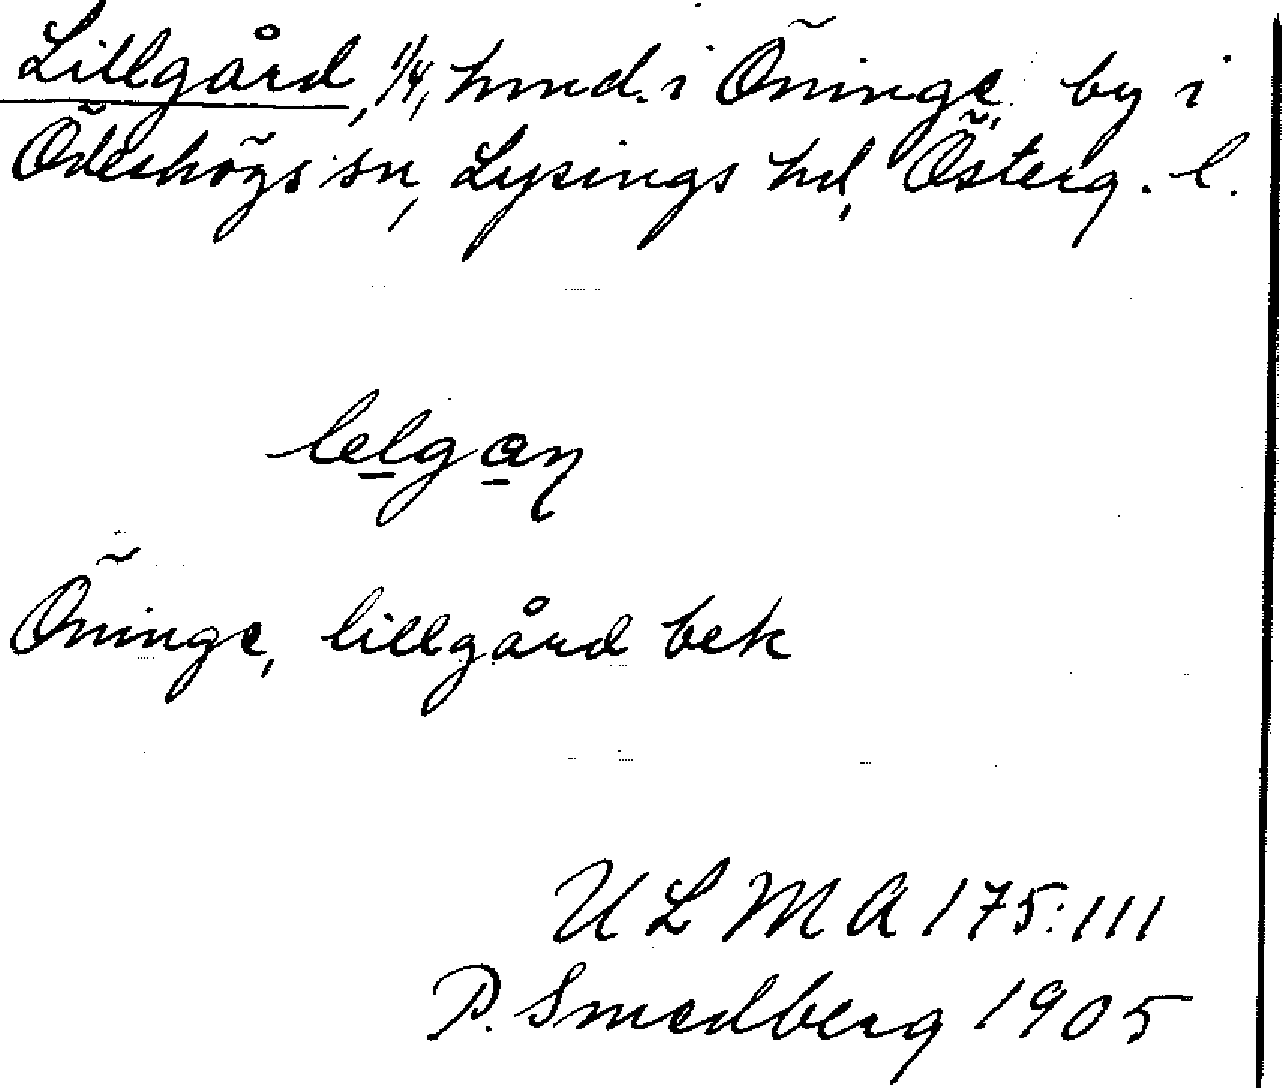 Lillgård, 1/4, hmd. i Öninge by i
Ödeshögs sn, Lysings hd, Österg. l.
lelgaŋ
Öninge, lillgård bek
ULMA 175:111
P. Smedberg 1905